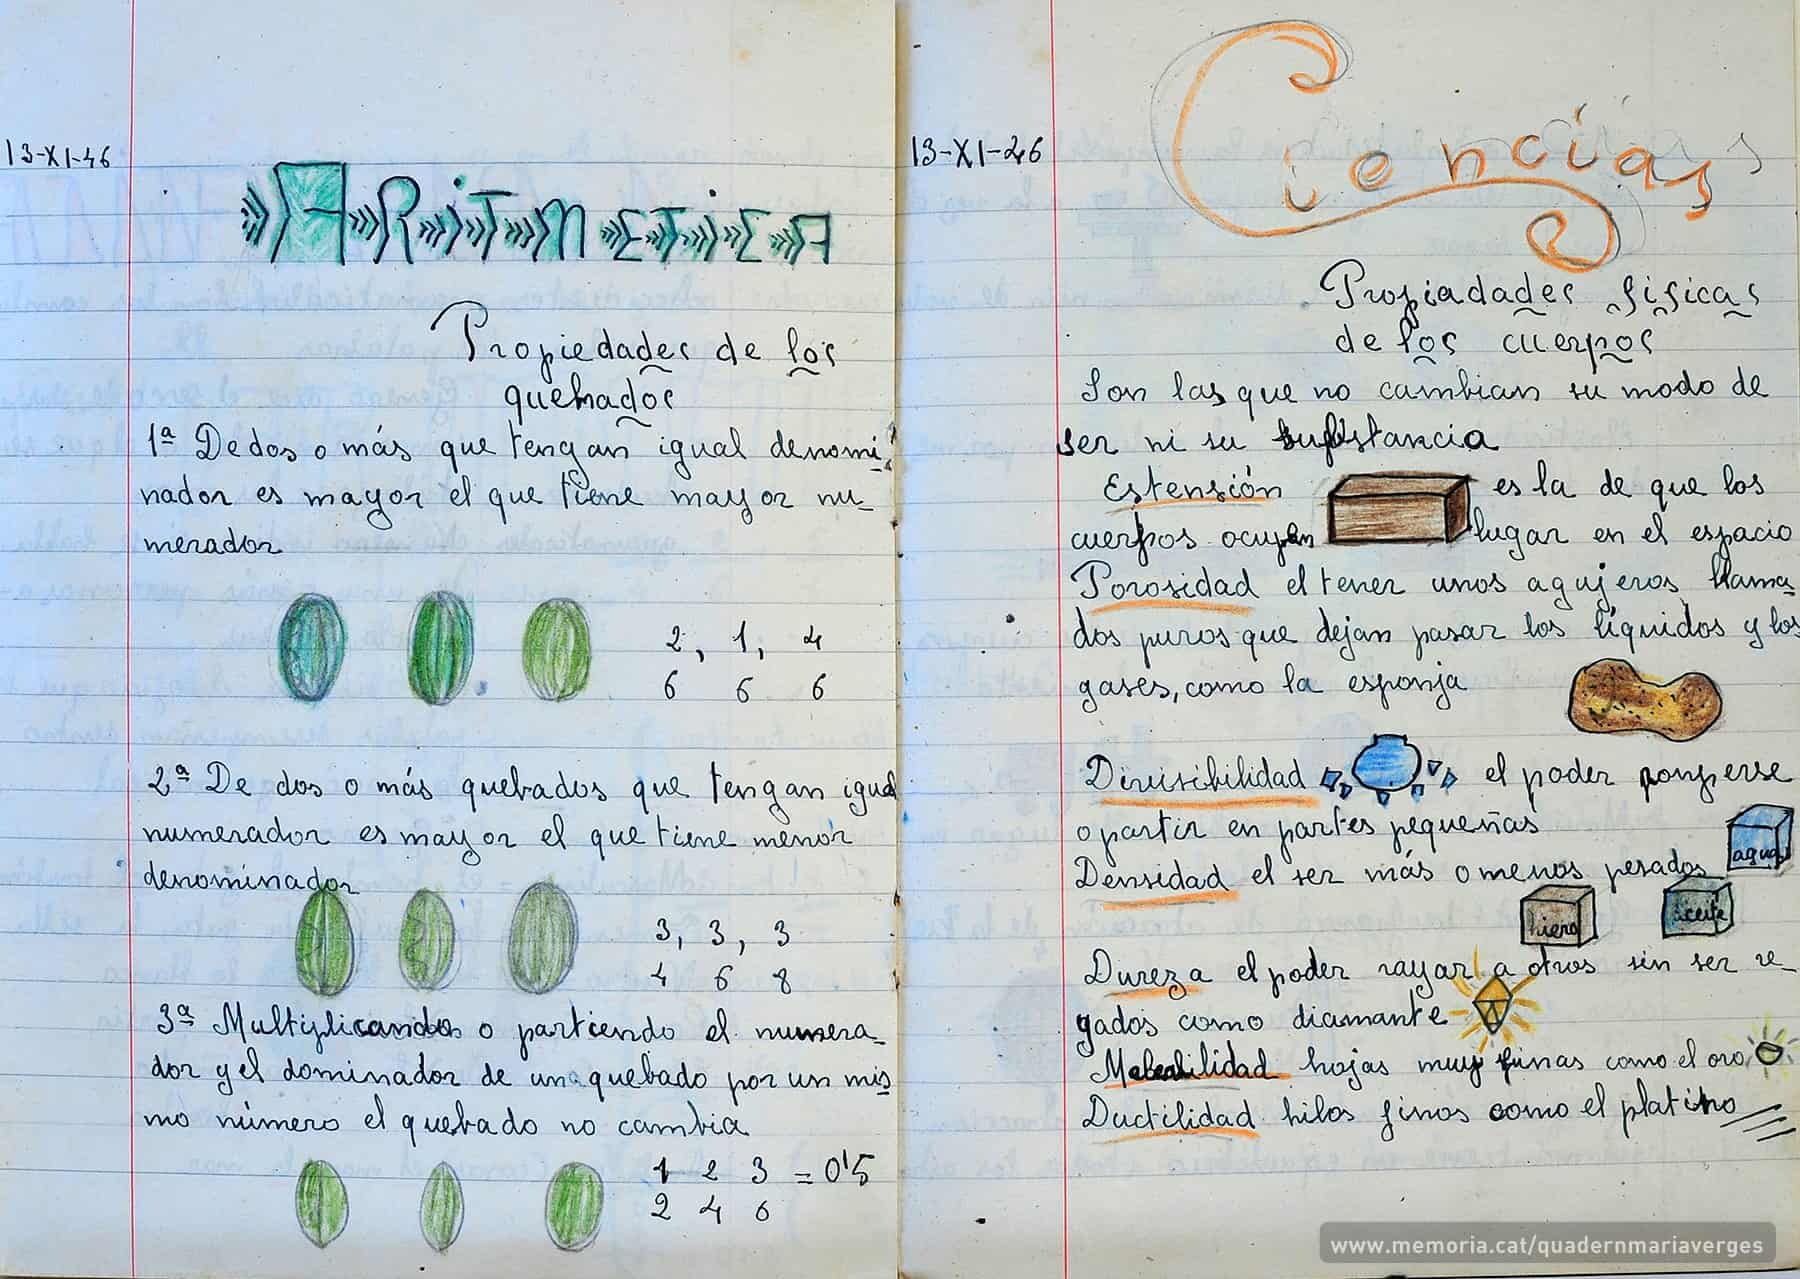 13-XI-46
ARiTMETiCA
Propiedades de los
quebrados
1ª De dos o más que tengan igual denomi-
nador es mayor el que tiene mayor nu-
merador
2, 1, 4
6 6 6
2ª De dos o más quebrados que tengan igual
numerador es mayor el que tiene menor
denominador
3, 3, 3
4 6 8
3ª Multiplicando o partiendo el numera-
dor y el dominador de un quebado por un mis
mo número el quebado no cambia
1 2 3 = 0'5
2 4 6
13-XI-46
Ciencias
Propiadades fisicas
de los cuerpos
Son las que no cambian su modo de
ser ni su substancia
Estensión es la de que los
cuerpos ocupen lugar en el espacio
Porosidad el tener unos agujeros llama-
dos puros que dejan pasar los líquidos y los
gases, como la esponja
Divisibilidad el poder romperse
o partir en partes pequeñas
agua
Densidad el ser más o menos pesados
hiero aceite
Dureza el poder rayar a otros sin ser re-
gados como diamante
Maleabilidad hojas muy finas como el oro
Ductilidad hilos finos como el platino
www.memoria.cat/quadernmariaverges